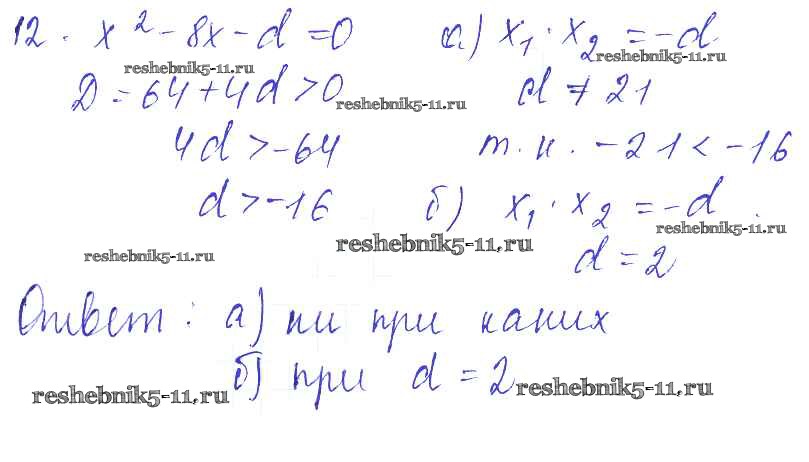 12. x² - 8x - d = 0
D = 64 + 4d > 0
4d > -64
d > -16
а) x₁ · x₂ = -d
d ≠ 21
т.к. -21 < -16
б) x₁ · x₂ = -d
d = 2
Ответ: а) ни при каких
б) при d = 2
reshebnik5-11.ru
reshebnik5-11.ru
reshebnik5-11.ru
reshebnik5-11.ru
reshebnik5-11.ru
reshebnik5-11.ru
reshebnik5-11.ru
reshebnik5-11.ru